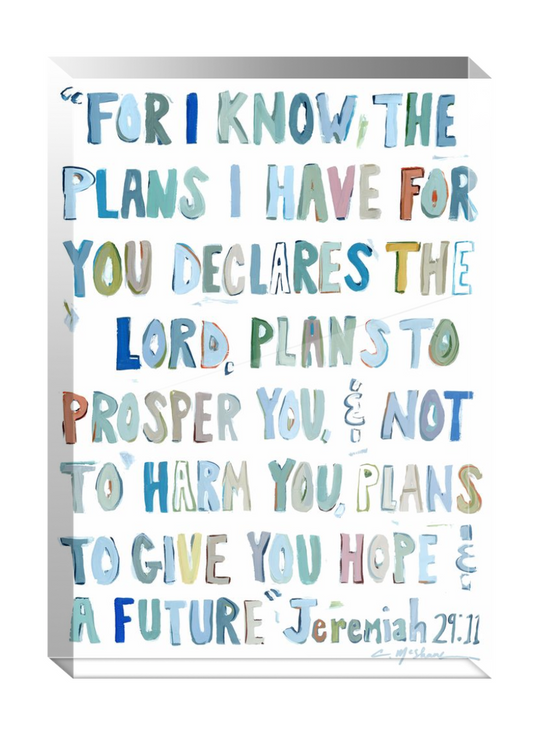 “FOR I KNOW, THE
PLANS I HAVE FOR
YOU DECLARES THE
LORD, PLANS TO
PROSPER YOU, & NOT
TO HARM YOU, PLANS
TO GIVE YOU HOPE &
A FUTURE” Jeremiah 29:11
C. McShane